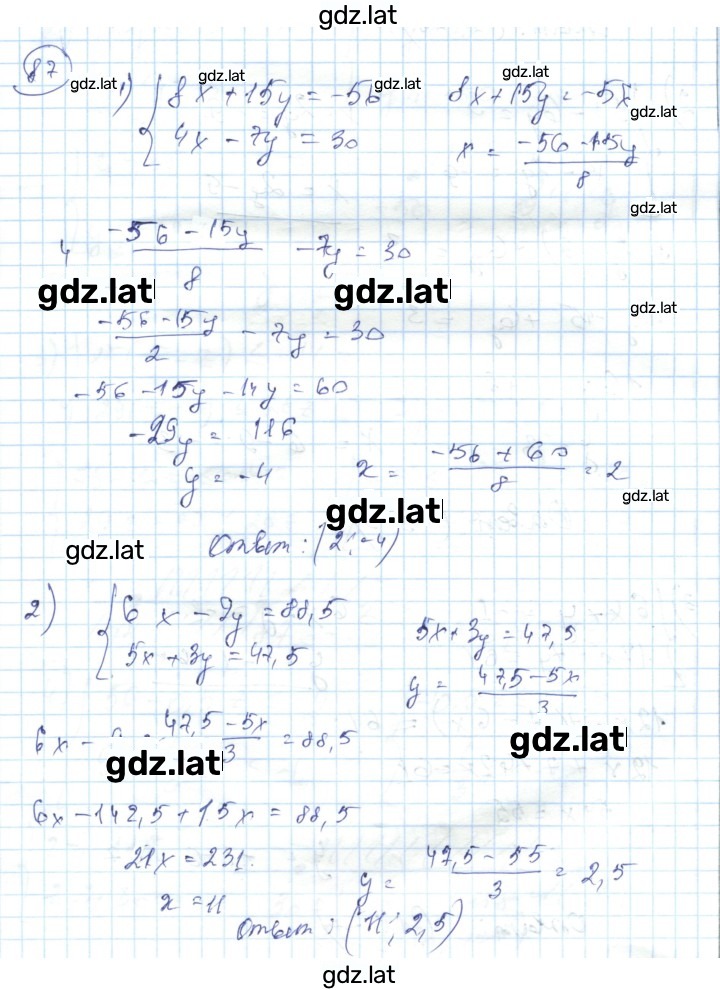 gdz.lat
87
gdz.lat 1) { 8x + 15y = -56 gdz.lat gdz.lat 8x + 15y = -56 gdz.lat gdz.lat
4x - 7y = 30 x = (-56 - 15y)/8
gdz.lat
4 (-56 - 15y)/8 - 7y = 30
gdz.lat gdz.lat gdz.lat
(-56 - 15y)/2 - 7y = 30
-56 - 15y - 14y = 60
-29y = 116
y = -4 x = (-56 + 60)/8 = 2
gdz.lat
gdz.lat
gdz.lat Ответ: (2; -4)
2) { 6x - 9y = 88,5
5x + 3y = 47,5 5x + 3y = 47,5
y = (47,5 - 5x)/3
6x - (47,5 - 5x)/3 = 88,5
gdz.lat gdz.lat
6x - 142,5 + 15x = 88,5
21x = 231
x = 11 y = (47,5 - 55)/3 = 2,5
Ответ: (11; 2,5)
gdz.lat